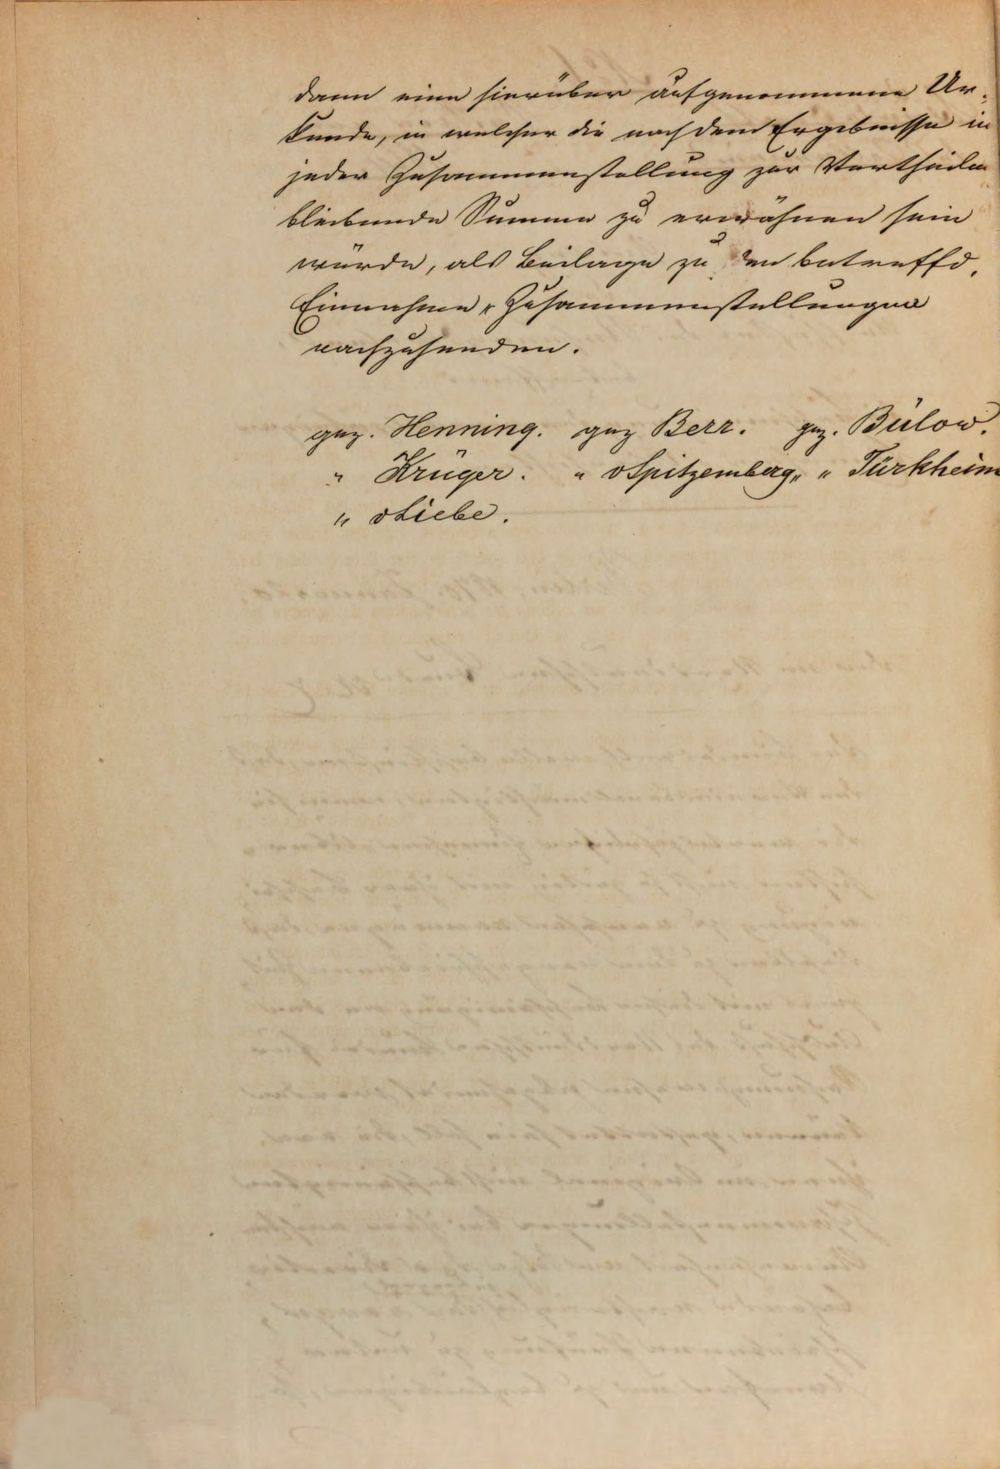 dann eine hierüber aufgenommene Ur-
kunde, in welcher die nach dem Ergebnisse in
jeder Zusammenstellung zur Vertheilu
bleibende Summe zu erwähnen sein
würde, als Beilage zu den betreffd.
Einnahme-Zusammenstellungen
nachzusenden.
gez. Henning. gez Berr. gez. Bülow.
" Krüger. " vSpitzemberg, " Türkheim
" vLiebe.